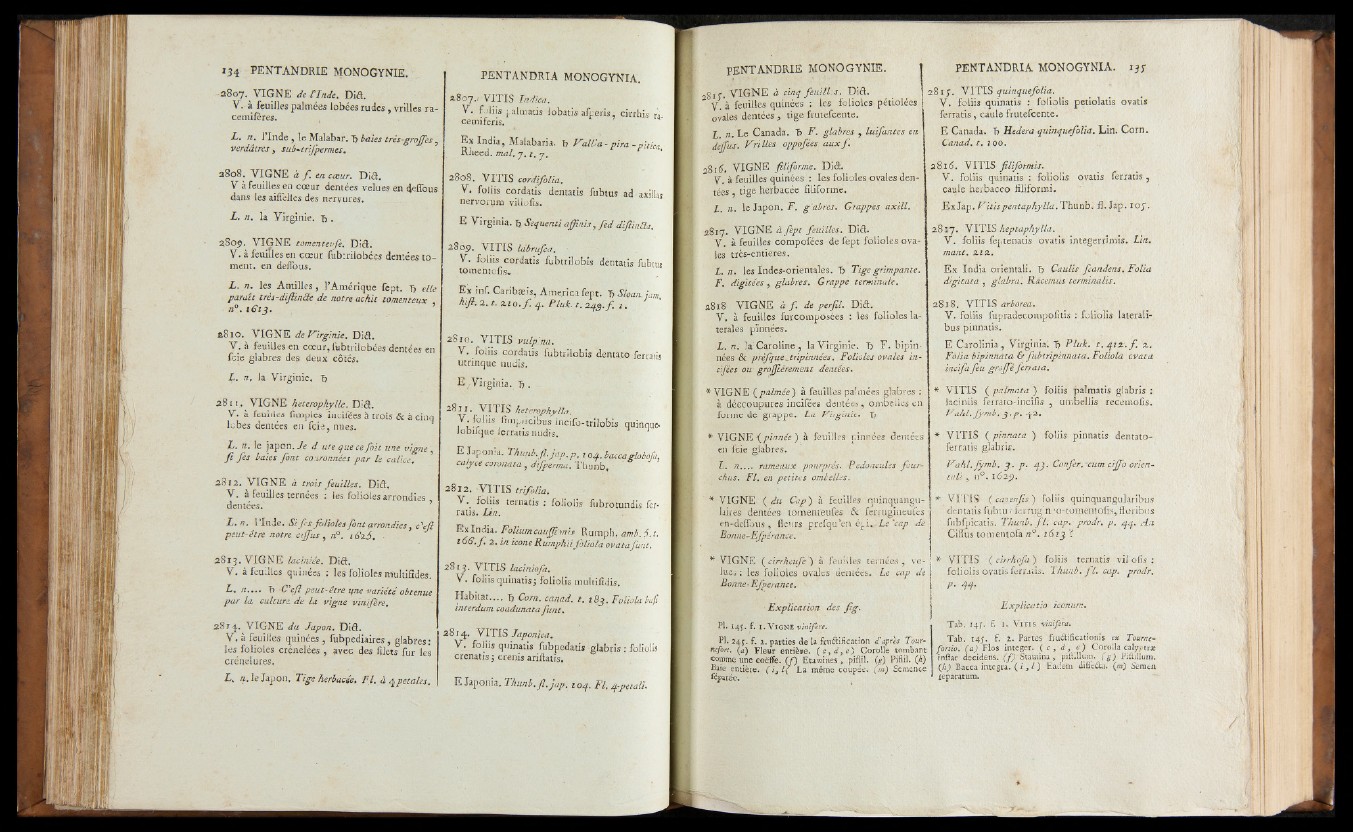 134 PENTANDRIE MONOGYNIE.
2807. VIGNE de l'Inde. Dict.
V. à feuilles palmées lobées rudes, vrilles ra-
cemifères.
L. n. l'Inde, le Malabar. ♄ baies très-grosses,
verdâtres, sub-trispermes.
2808. VIGNE à f. en cœur. Dict.
V à feuilles en cœur dentées velues en dessous
dans les aisselles des nervures.
L. n. la Virginie. ♄.
2809. VIGNE tomenteuse. Dict.
V. à feuilles en cœur subtrilobées dentées to-
ment. en dessous.
L. n. les Antilles, l'Amérique sept. ♄ elle
paraît très-distincte de notre achit tomenteux,
n°. 1613.
2810. VIGNE de Virginie. Dict.
V. à feuilles en cœur, subtrilobées dentées en
scie glabres des deux côtés.
L. n. la Virginie. ♄
2811. VIGNE heterophylle. Dict.
V. à feuilles simples incisées à trois & à cinq
lobes dentées en scie, nues.
L. n. le japon. Je doute que ce soit une vigne,
si ses baies sont couronnées par le calice.
2812. VIGNE à trois feuilles. Dict.
V. à feuilles ternées : les folioles arrondies,
dentées.
L. n. l'Inde. Si ses folioles sont arrondies, c'est
peut-être notre cissus, n°. 1625.
2813. VIGNE laciniée. Dict.
V. à feuilles quinées : les folioles multifides.
L. n.... ♄ C'est peut-être une variété obtenue
par la culture de la vigne vinifère.
2814. VIGNE du Japon. Dict.
V. à feuilles quinées, subpediaires, glabres:
les folioles crénelées, avec des filets sur les
crénelures.
L. n. le Japon. Tige herbacée. Fl. à 4 petales.
PENTANDRIA MONOGYNIA.
2807. VITIS Indica.
V. foliis palmatis lobatis asperis, cirrhis ra-
cemiferis.
Ex India, Malabaria. ♄ Vallia-pira-pitica,
Rheed. mal. 7. t. 7.
2808. VITIS cordifolia.
V. foliis cordatis dentatis subtus ad axillas
nervorum villosis.
E Virginia. ♄ Sequenti affinis, sed distincta.
2809. VITIS labrusca.
V. foliis cordatis subtrilobis dentatis subtus
tomentosis.
Ex inf. Caribæis, America sept. ♄ Sloan. jam.
hist. 2. t. 210. f. 4. Pluk. t. 249. f. 1.
2810. VITIS vulpina.
V. foliis cordatis subtrilobis dentato serratis
utrinque nudis.
E Virginia. ♄.
2811. VITIS heterophylla.
V. foliis simplicibus inciso-trilobis quinque-
lobisque serratis nudis.
E Japonia. Thunb. fl. jap. p. 104. bacca globosa,
calyce coronata, disperma. Thunb.
2812. VITIS trifolia.
V. foliis ternatis : foliolis subrotundis ser-
ratis. Lin.
Ex India. Folium causticmis Rumph. amb. 5. t.
166. f. 2. in icone Rumphii foliola ovata sunt.
2813. VITIS laciniosa.
V. foliis quinatis; foliolis multifidis.
Habitat.... ♄ Corn. canad. t. 183. Foliola basi
interdum coadunata sunt.
2814. VITIS Japonica.
V. foliis quinatis subpedatis glabris : foliolis
crenatis; crenis aristatis.
E Japonia. Thunb. fl. jap. 104. Fl. 4-petali.
PENTANDRIE MONOGYNIE.
2815. VIGNE à cinq feuilles. Dict.
V. à feuilles quinées : les folioles pétiolées
ovales dentées, tige frutescente.
L. n. Le Canada. ♄ F. glabres, luisantes en
dessus. Vrilles opposées aux f.
2816. VIGNE filiforme. Dict.
V. à feuilles quinées : les folioles ovales den-
tées, tige herbacée filiforme.
L. n. le Japon. F. glabres. Grappes axill.
2817. VIGNE à sept feuilles. Dict.
V. à feuilles composées de sept folioles ova-
les très-entieres.
L. n. les Indes-orientales. ♄ Tige grimpante.
F. digitées, glabres. Grappe terminale.
2818 VIGNE à f. de persil. Dict.
V. à feuilles surcomposées : les folioles la-
terales pinnées.
L. n. la Caroline, la Virginie. ♄ F. bipin-
nées & presque tripinnées. Folioles ovales in-
cisées ou grossièrement dentées.
* VIGNE (palmée) à feuilles palmées glabres :
à découpures incisées dentées, ombelles en
forme de grappe. La Virginie. ♄
* VIGNE (pinnée) à feuilles pinnées dentées
en scie glabres.
L. n.... rameaux pourprés. Pedoncules four-
chus. Fl. en petites ombelles.
* VIGNE (du Cap) à feuilles quinquangu-
laires dentées tomenteuses & ferrugineuses
en-dessous, fleurs presqu'en épi. Le cap de
Bonne-Espérance.
* VIGNE (cirrheuse) à feuilles ternées, ve-
lues: les folioles ovales dentées. Le cap de
Bonne-Espérance.
Explication des fig.
Pl. 145. f. 1. VIGNE vinifère.
Pl. 245. f. 2. parties de la fructification d'après Tour-
nefort. (a) Fleur entière. (c, d, e) Corolle tombant
comme une coëffe. (f) Etamines, pistil. (g) Pistil. (h)
Baie entière. (i, l) La même coupée. (m) Semence
séparée.
PENTANDRIA MONOGYNIA. 135
2815. VITIS quinquefolia.
V. foliis quinatis : foliolis petiolatis ovatis
serratis, caule frutescente.
E Canada. ♄ Hedera quinquefolia. Lin. Corn.
Canad. t. 100.
2816. VITIS filiformis.
V. foliis quinatis : foliolis ovatis serratis,
caule herbacco filiformi.
Ex Jap. Vitis pentaphylla. Thunb. fl. Jap. 105.
2817. VITIS heptaphylla.
V. foliis septenatis ovatis integerrimis. Lin.
mant. 212.
Ex India orientali. ♄ Caulis scandens. Folia
digitata, glabra. Racemus terminalis.
2818. VITIS arborea.
V. foliis supradecompositis : foliolis laterali-
bus pinnatis.
E Carolinia, Virginia. ♄ Pluk. t. 412. f. 2.
Folia bipinnata & subtripinnata. Foliola ovata
incisa seu grossè serrata.
* VITIS (palmata) foliis palmatis glabris :
laciniis serrato-incisis, umbellis recemosis.
Vahl. symb. 3. p. 42.
* VITIS (pinnata) foliis pinnatis dentato-
serratis glabris.
Vahl. symb. 3. p. 43. Confer. cum cisso orien-
tali, n°. 1629.
* VITIS (capensis) foliis quinquangularibus
dentatis subtus ferrugineo-tomentosis, floribus
subspicatis. Thunb. fl. cap. prodr. p. 44. An
Cissus tomentosa n°. 1613 ?
* VITIS (cirrhosa) foliis ternatis villosis :
foliolis ovatis serratis. Thunb. fl. cap. prodr.
p. 44.
Explicatio iconum.
Tab. 145. f. 1. VITIS vinifera.
Tab. 145. f. 2. Partes fructificationis ex Tourne-
fortio. (a) Flos integer. (c, d, e) Corolla calyptræ
instar decidens. (f) Stamina, pistillum. (g) Pistillum.
(h) Bacca integra. (i, l) Eadem dissecta. (m) Semen
separatum.